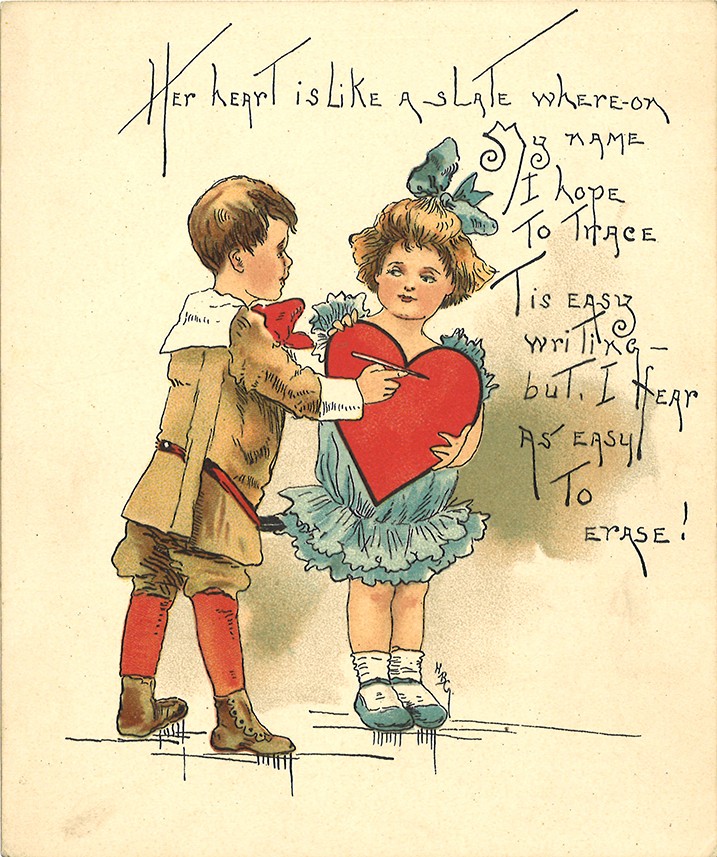 Her heart is like a slate where-on
My name
I hope
To Trace
Tis easy
writing—
but, I Hear
as easy
To
erase!
HBG